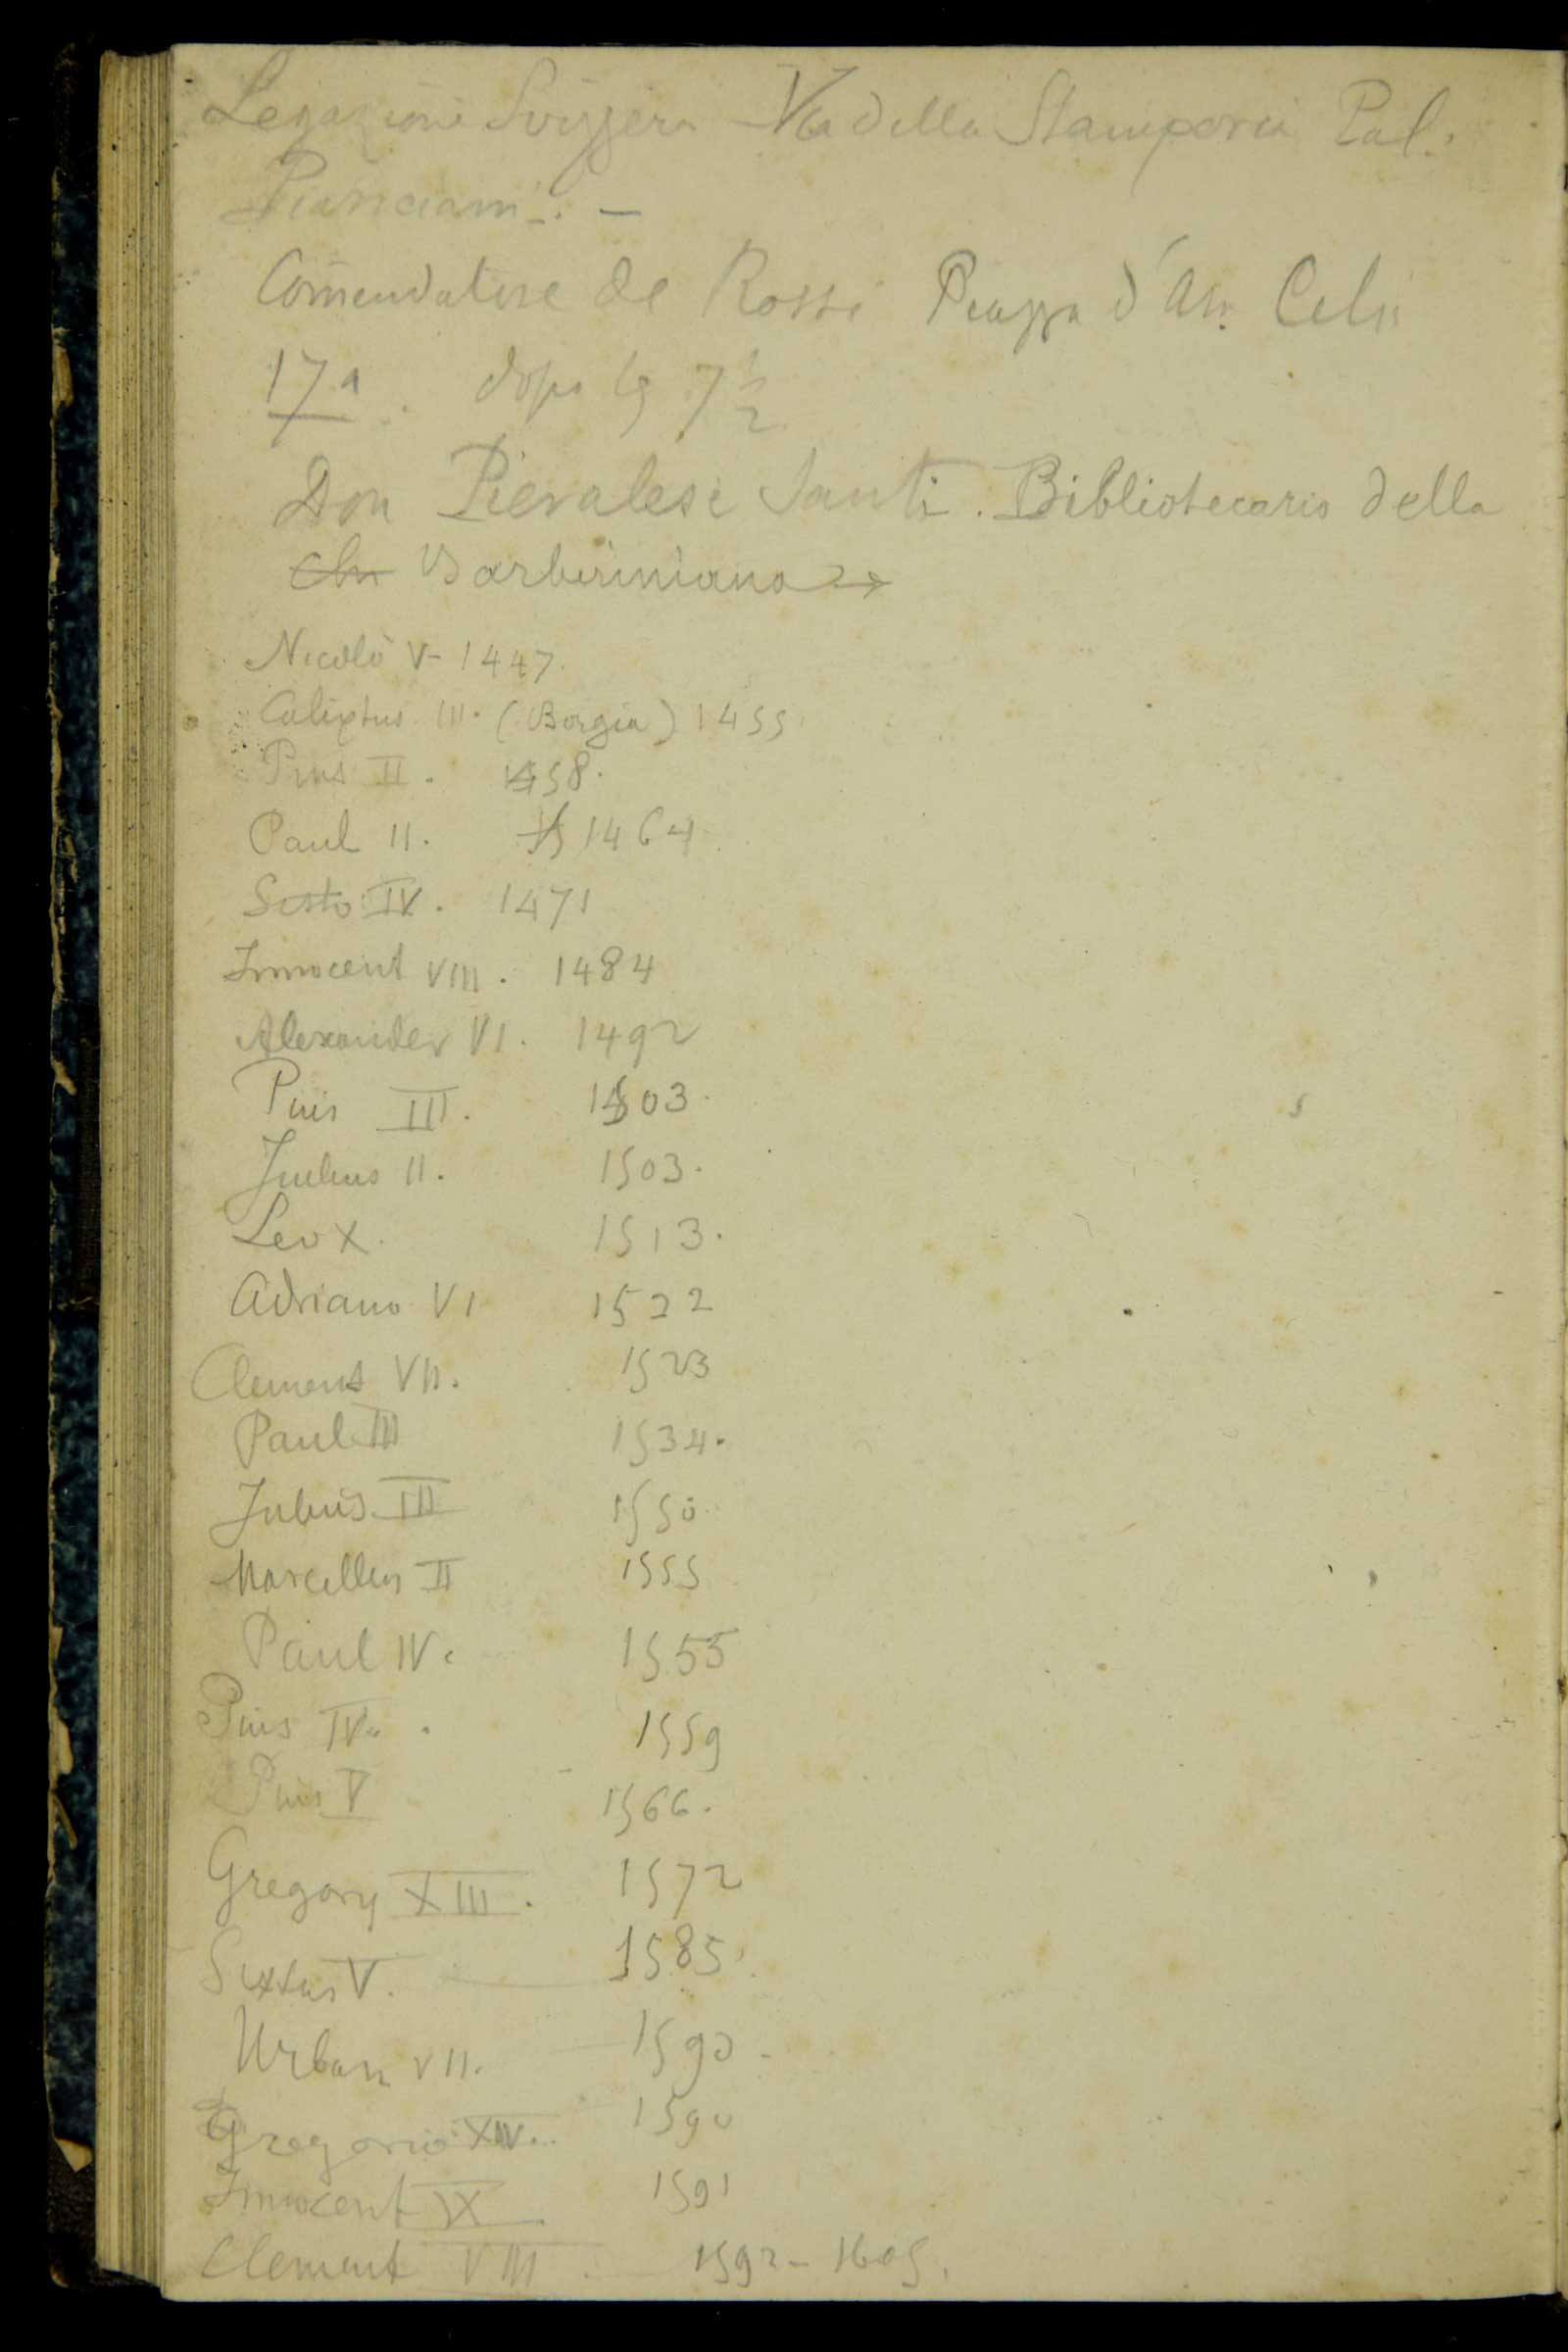 Legazione Svizzera Via della Stamperia Pal.
Pianciani. —
Comendatore de Rossi Piazza d'Ara Celi
17a. dopo le 7 1/2
Don Pieralesi Santi. Bibliotecario della
Barberiniana
Nicolò V - 1447.
Calixtus III. (Borgia) 1455
Pius II. 1458.
Paul II. 1464.
Sisto IV. 1471
Innocent VIII. 1484
Alexander VI. 1492
Pius III. 1503.
Julius II. 1503.
Leo X. 1513.
Adriano VI 1522
Clement VII. 1523
Paul III 1534.
Julius III 1550.
Marcellus II 1555
Paul IV. 1555
Pius IV. 1559
Pius V 1566.
Gregory XIII. 1572
Sixtus V. 1585.
Urban VII. 1590.
Gregorio XIV. 1590
Innocent IX. 1591
Clement VIII. 1592 - 1605.